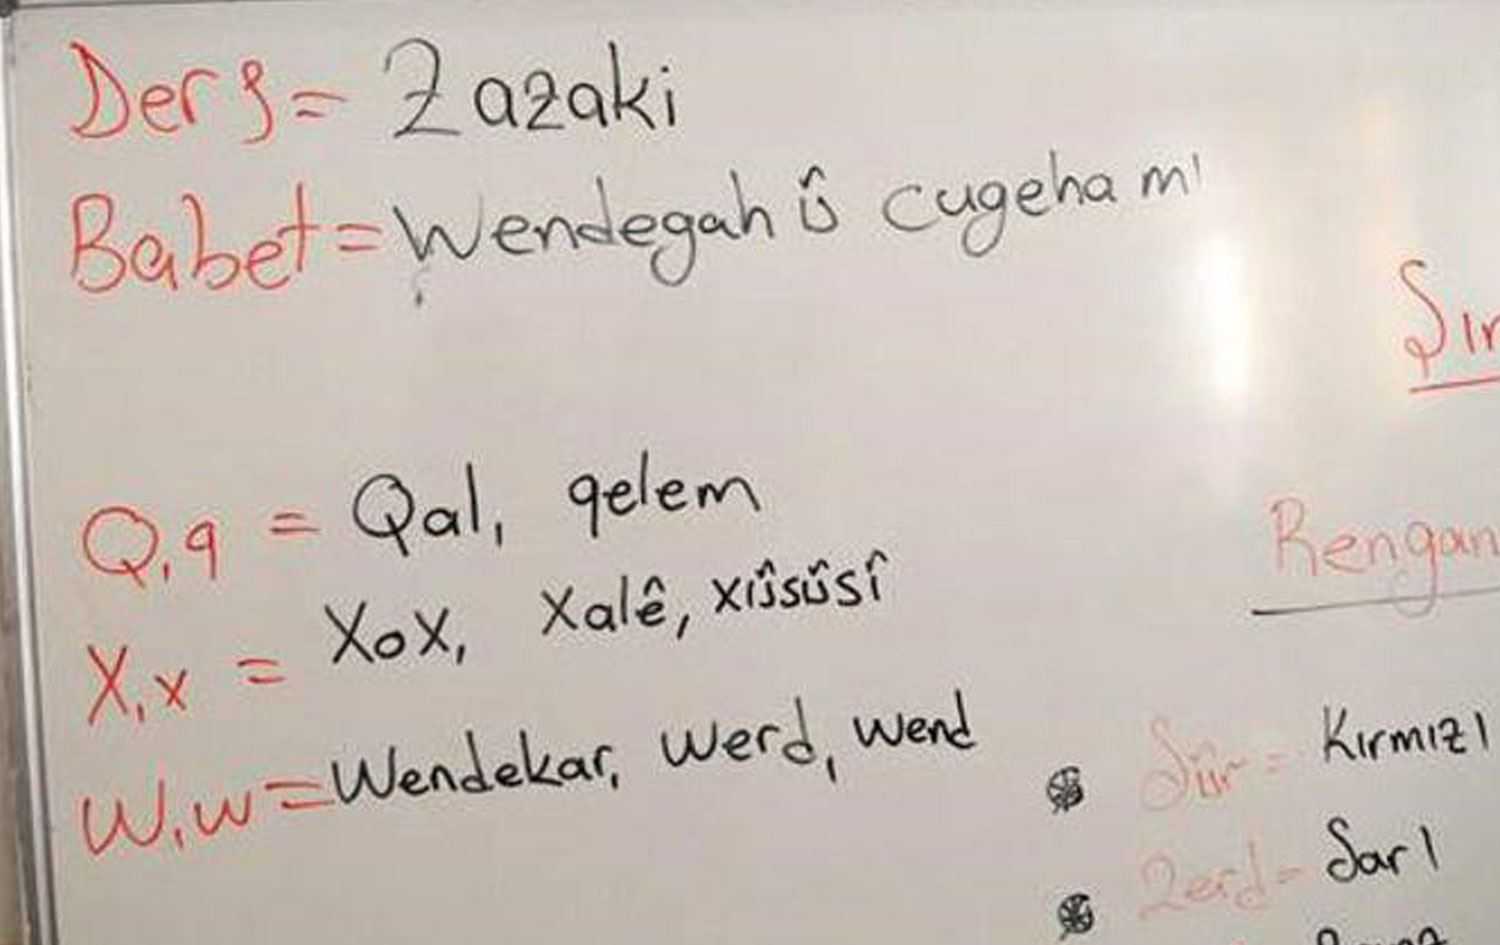 Ders = Zazaki
Babet = Wendegah û cugeha mı
Q, q = Qal, qelem
X, x = XoX, Xalê, xûsûsî
W, w = Wendekar, Werd, wend
Rengan
Sûr = Kırmızı
Zerd = Sarı